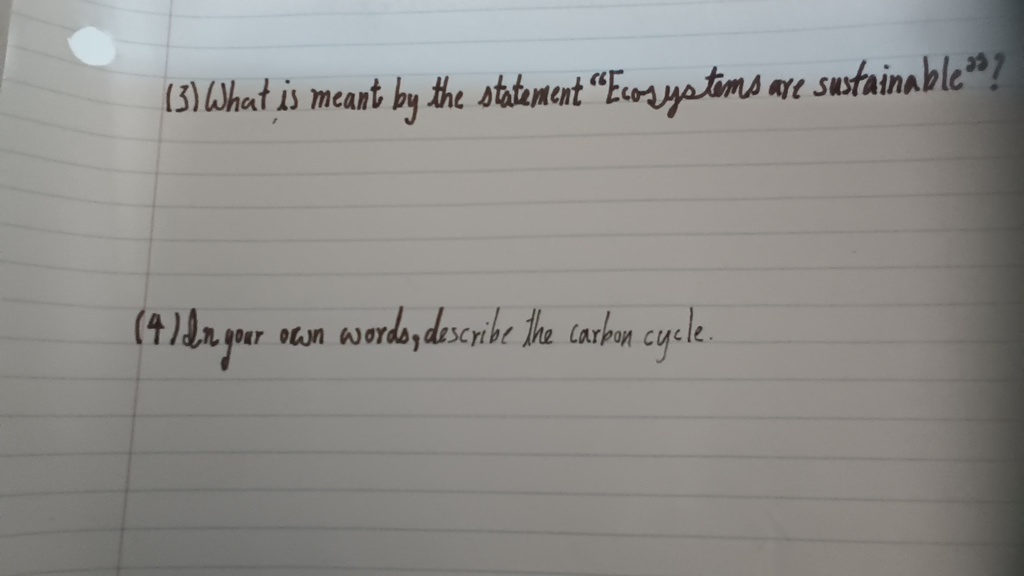 (3) What is meant by the statement “Ecosystems are sustainable”?
(4) In your own words, describe the carbon cycle.